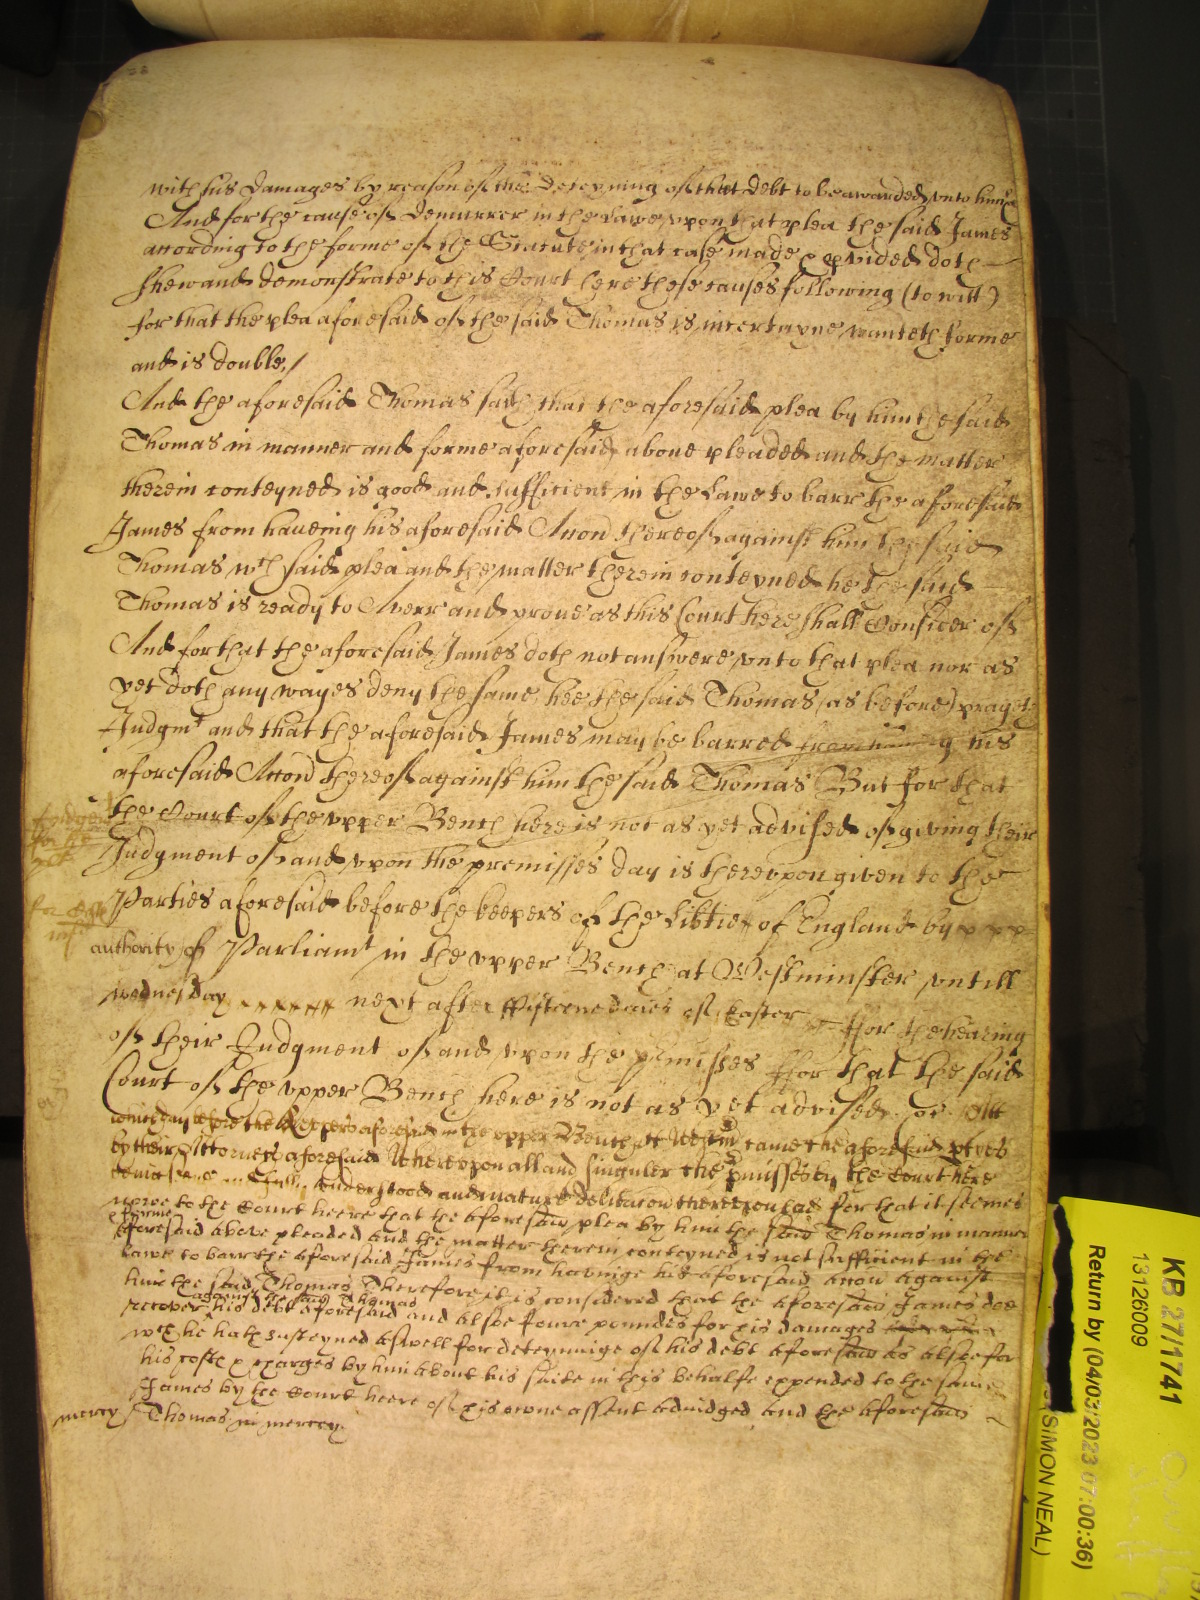 with his damages by reason of the deteyning of that debt to be awarded vnto him &c
And for the cause of demurrer in the Lawe vpon that plea the said James
according to the forme of the Statute in that case made & pvided doth
shew and demonstrate to this Court here these causes following (to witt)
for that the plea aforesaid of the said Thomas is incertayne wanteth forme
and is double,/
And the aforesaid Thomas saith that the aforesaid plea by him the said
Thomas in manner and forme aforesaid aboue pleaded and the matter
therein conteyned is good and sufficient in the Lawe to barr the aforesaid
James from haueing his aforesaid Accon thereof against him the said
Thomas wch said plea and the matter therein conteyned he the said
Thomas is ready to Averr and proue as this Court here shall Consider of
And for that the aforesaid James doth not answere vnto that plea nor as
yet doth any wayes deny the same, hee the said Thomas (as before) prayeth
Judgmt and that the aforesaid James may be barred from haueing his
aforesaid Accon thereof against him the said Thomas But for that
the Court of the vpper Bench here is not as yet advised of giving their
Judgment of and vpon the premisses day is therevpon given to the
Parties aforesaid before the keepers of the libtie of England by
authority of Parliamt in the vpper Bench at Westminster vntill
wednesday next after ffifteene daies of Easter ffor the hearing
of their Judgment of and vpon the pmisses ffor that the said
Court of the vpper Bench here is not as yet advised &c Att
which day before the Keepers aforesaid in the vpper Bench att Westm came the aforesaid pties
by their Attorneys aforesaid Wherevpon all and singuler the pmisses by the Court here
being seene and fully understood and mature delibacon therevpon had for that it seemes
to the Court heere that the aforesaid plea by him the said Thomas in manner
& forme
aforesaid above pleaded and the matter therein conteyned is not sufficient in the
lawe to barr the aforesaid James from havinge his aforesaid accon against
him the said Thomas Therefore it is considered that the aforesaid James doe
against the said Thomas
recover his debt aforesaid and alsoe foure poundes for his damages
wch he hath susteyned aswell for deteyninge of his debt aforesaid as alsoe for
his costes & charges by him about his suite in this behalfe expended to the said
James by the Court heere of his owne assent adiudged And the aforesaid
mercy Thomas in mercy
KB 27/1741
13126009
Return by (04/03/2023 07:00:36)
(SIMON NEAL)